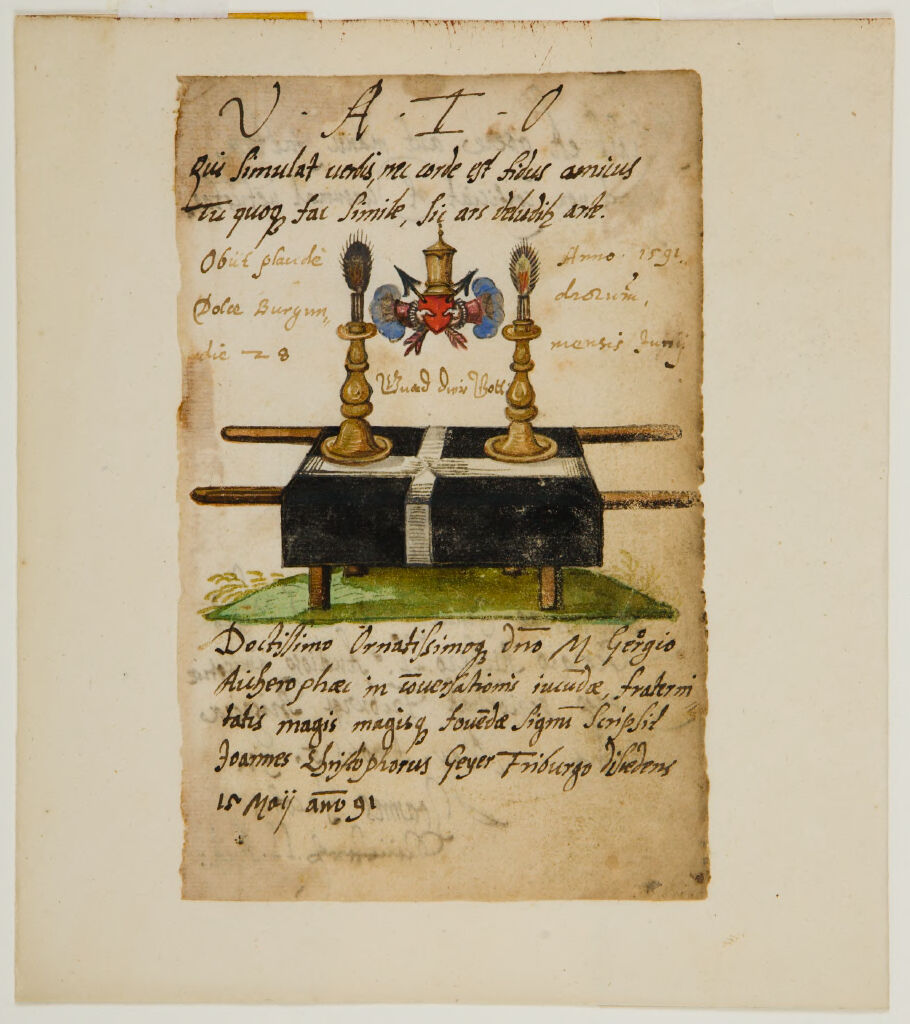 V · A · I · O
Qui simulat verbis, nec corde est fidus amicus
Tu quoq fac simile, sic ars deludit arte.
Obiit Anno 1591.
Dolae Burgun,,
die 28 mensis Junij
Doctissimo Ornatissimoq dno M Georgio
in coversationis iucudæ, fraterni
tatis magis magisq fovedæ signu scripsit
Joannes Christophorus Geyer Friburgo
15 Maij anno 91